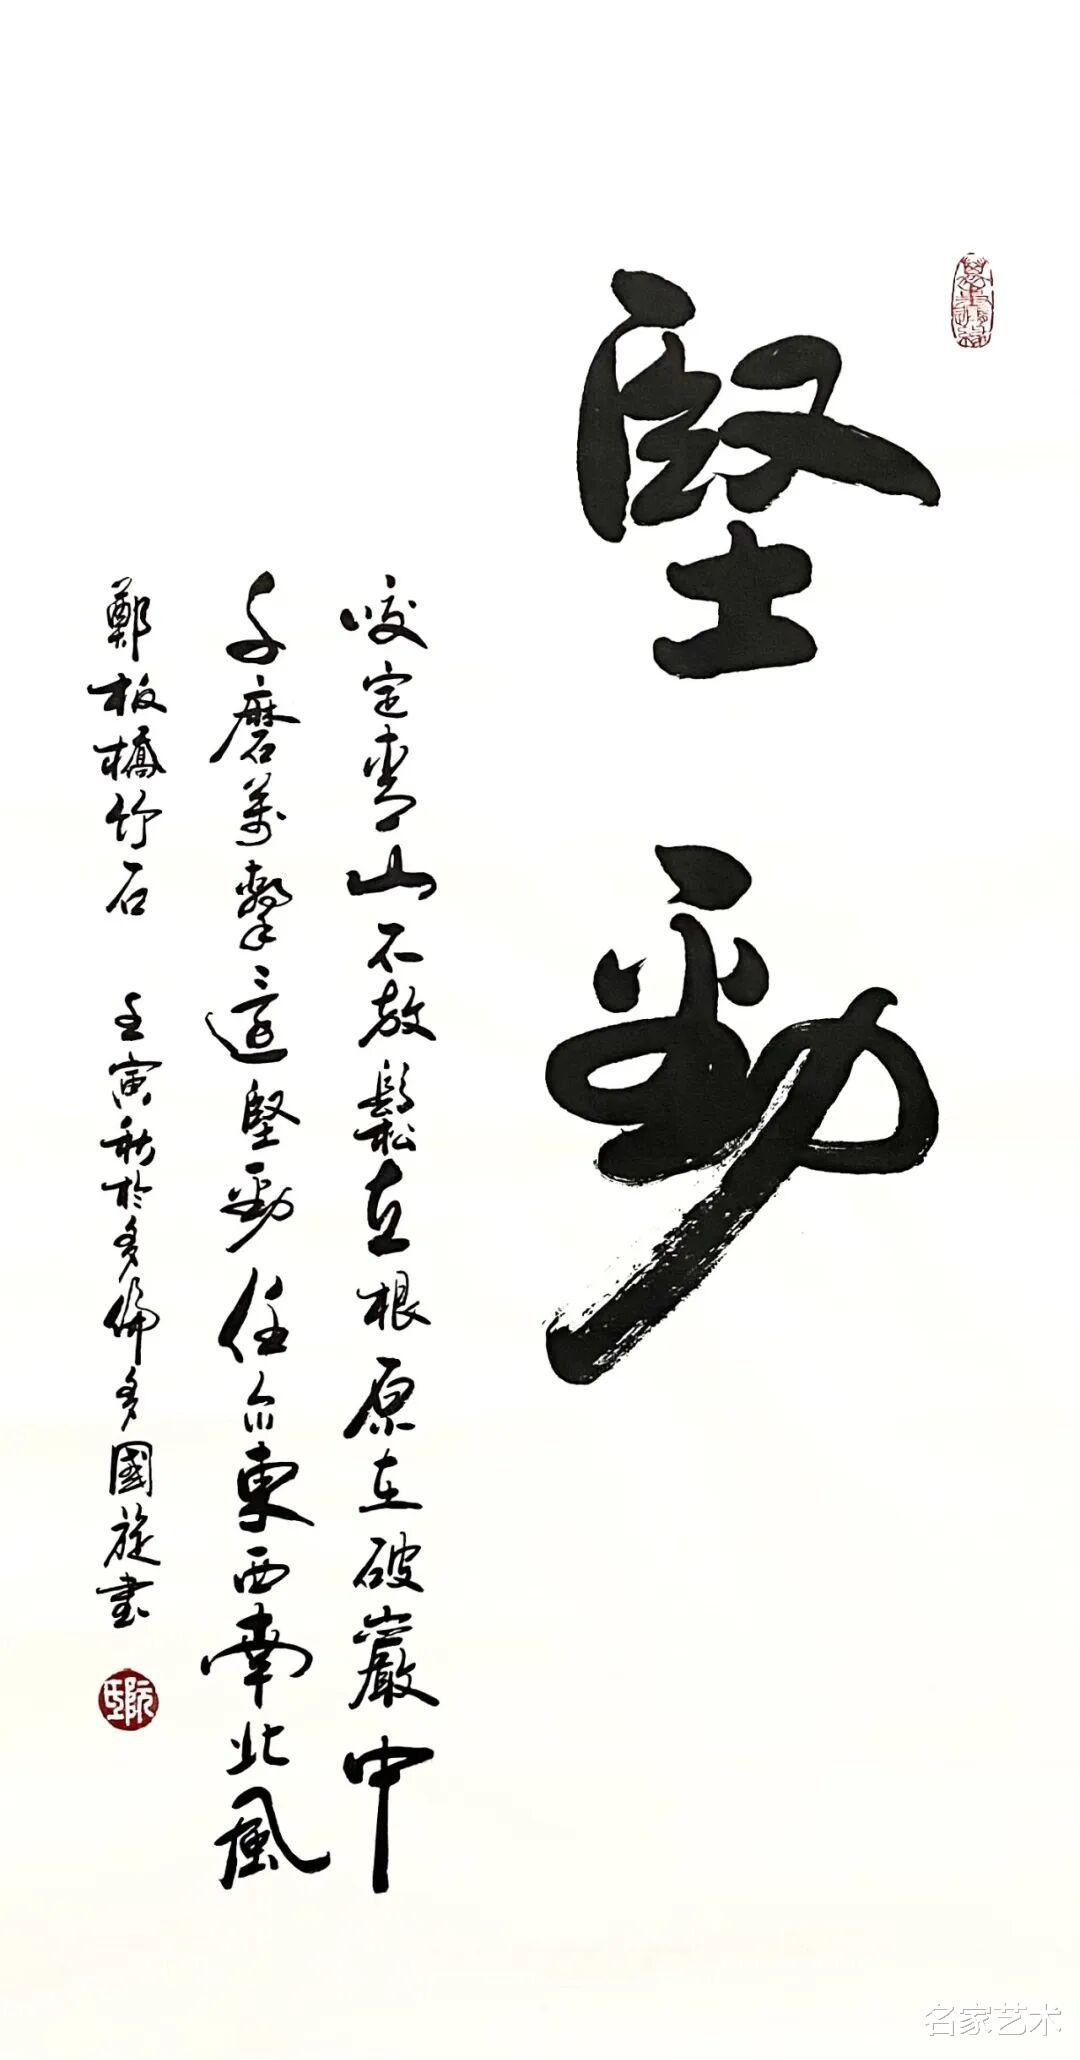 堅勁
咬定青山不放鬆立根原在破巖中
千磨萬擊還堅勁任尒東西南北風
鄭板橋竹石 壬寅秋於多倫多國旋書
名家艺术